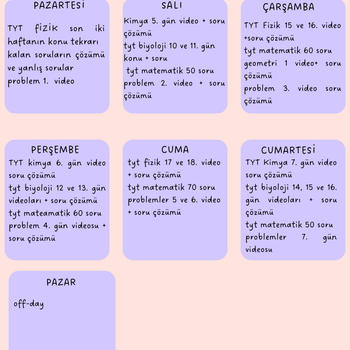 PAZARTESİ
TYT FİZİK son iki
haftanın konu tekrarı
kalan soruların çözümü
ve yanlış sorular
problem 1. video
SALI
Kimya 5. gün video + soru
çözümü
tyt biyoloji 10 ve 11. gün
konu + soru
tyt matematik 50 soru
problem 2. video + soru
çözümü
ÇARŞAMBA
TYT Fizik 15 ve 16. video
+soru çözümü
tyt matematik 60 soru
geometri 1 video+ soru
çözümü
problem 3. video soru
çözümü
PERŞEMBE
TYT kimya 6. gün video
soru çözümü
tyt biyoloji 12 ve 13. gün
videoları + soru çözümü
tyt mateamatik 60 soru
problem 4. gün videosu +
soru çözümü
CUMA
tyt fizik 17 ve 18. video
+ soru çözümü
tyt matematik 70 soru
problemler 5 ve 6. video
+ soru çözümü
CUMARTESİ
TYT Kimya 7. gün video
soru çözümü
tyt biyoloji 14, 15 ve 16.
gün videoları + soru
çözümü
tyt matematik 50 soru
problemler 7. gün
videosu
PAZAR
off-day